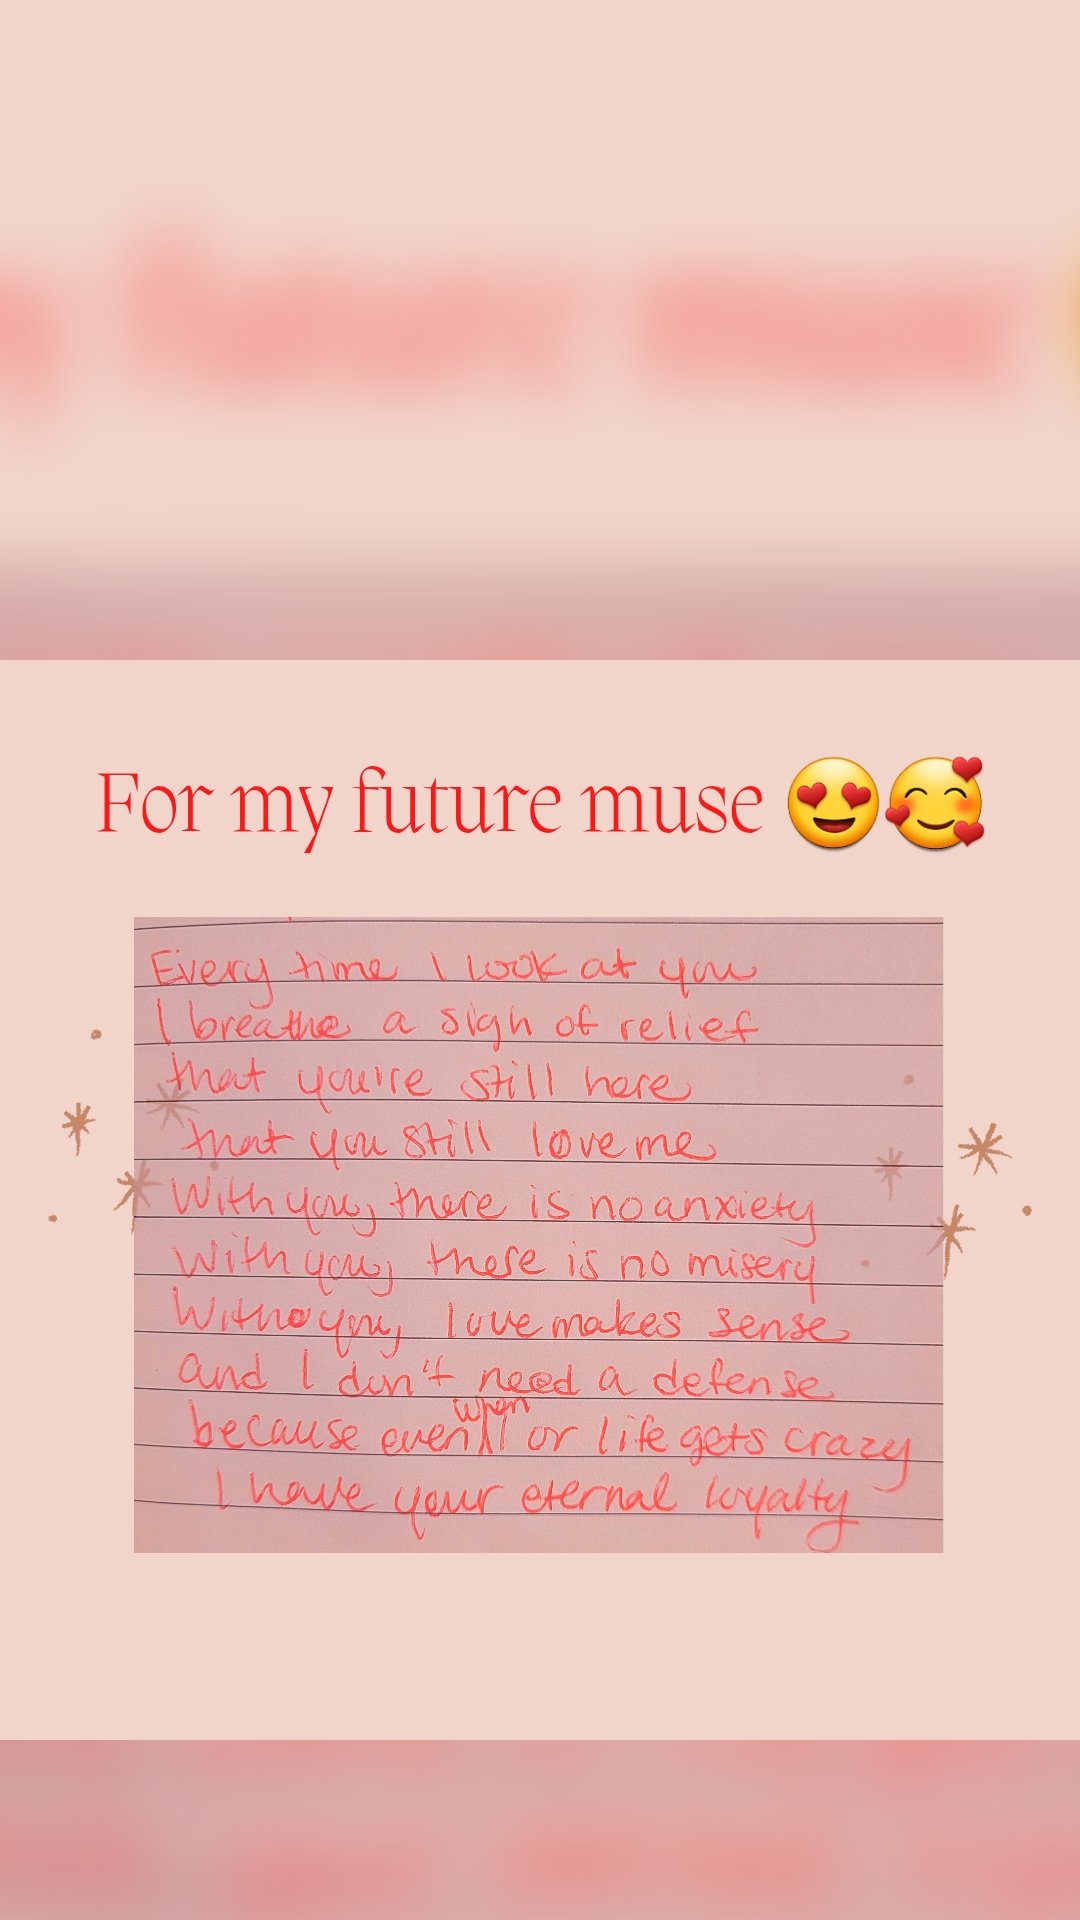 For my future muse 😍🥰
Every time I look at you
I breathe a sigh of relief
that you're still here
that you still love me
With you, there is no anxiety
With you, there is no misery
With you, love makes sense
and I don't need a defense
because even when I or life gets crazy
I have your eternal loyalty